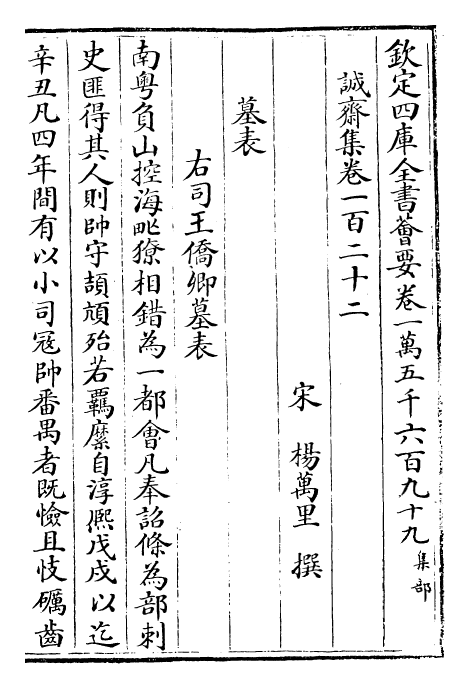 欽定四庫全書薈要卷一萬五千六百九十九 集部
誠齋集卷一百二十二
宋 楊萬里 撰
墓表
右司王僑卿墓表
南粤負山控海毗獠相錯為一都㑹凡奉詔條為部刺
史匪得其人則帥守頡頏殆若覊縻自淳熈戊戌以迄
辛丑凡四年間有以小司冦帥番禺者既憸且忮礪齒